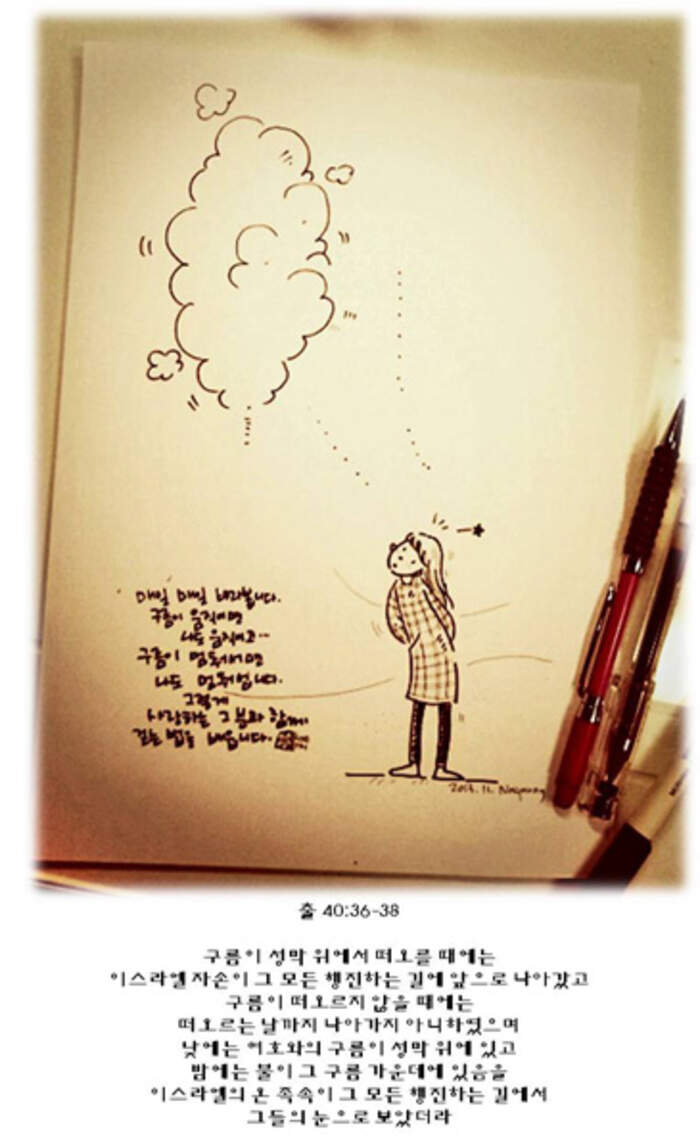 매일 매일 바라봅니다.
구름이 움직이면
나도 움직이고...
구름이 멈춰서면
나도 멈춰섭니다.
그렇게
사랑하는 그 분과 함께
걷는 법을 배웁니다.
2014. 11.
출 40:36-38
구름이 성막 위에서 떠오를 때에는
이스라엘 자손이 그 모든 행진하는 길에 앞으로 나아갔고
구름이 떠오르지 않을 때에는
떠오르는 날까지 나아가지 아니하였으며
낮에는 여호와의 구름이 성막 위에 있고
밤에는 불이 그 구름 가운데에 있음을
이스라엘의 온 족속이 그 모든 행진하는 길에서
그들의 눈으로 보았더라